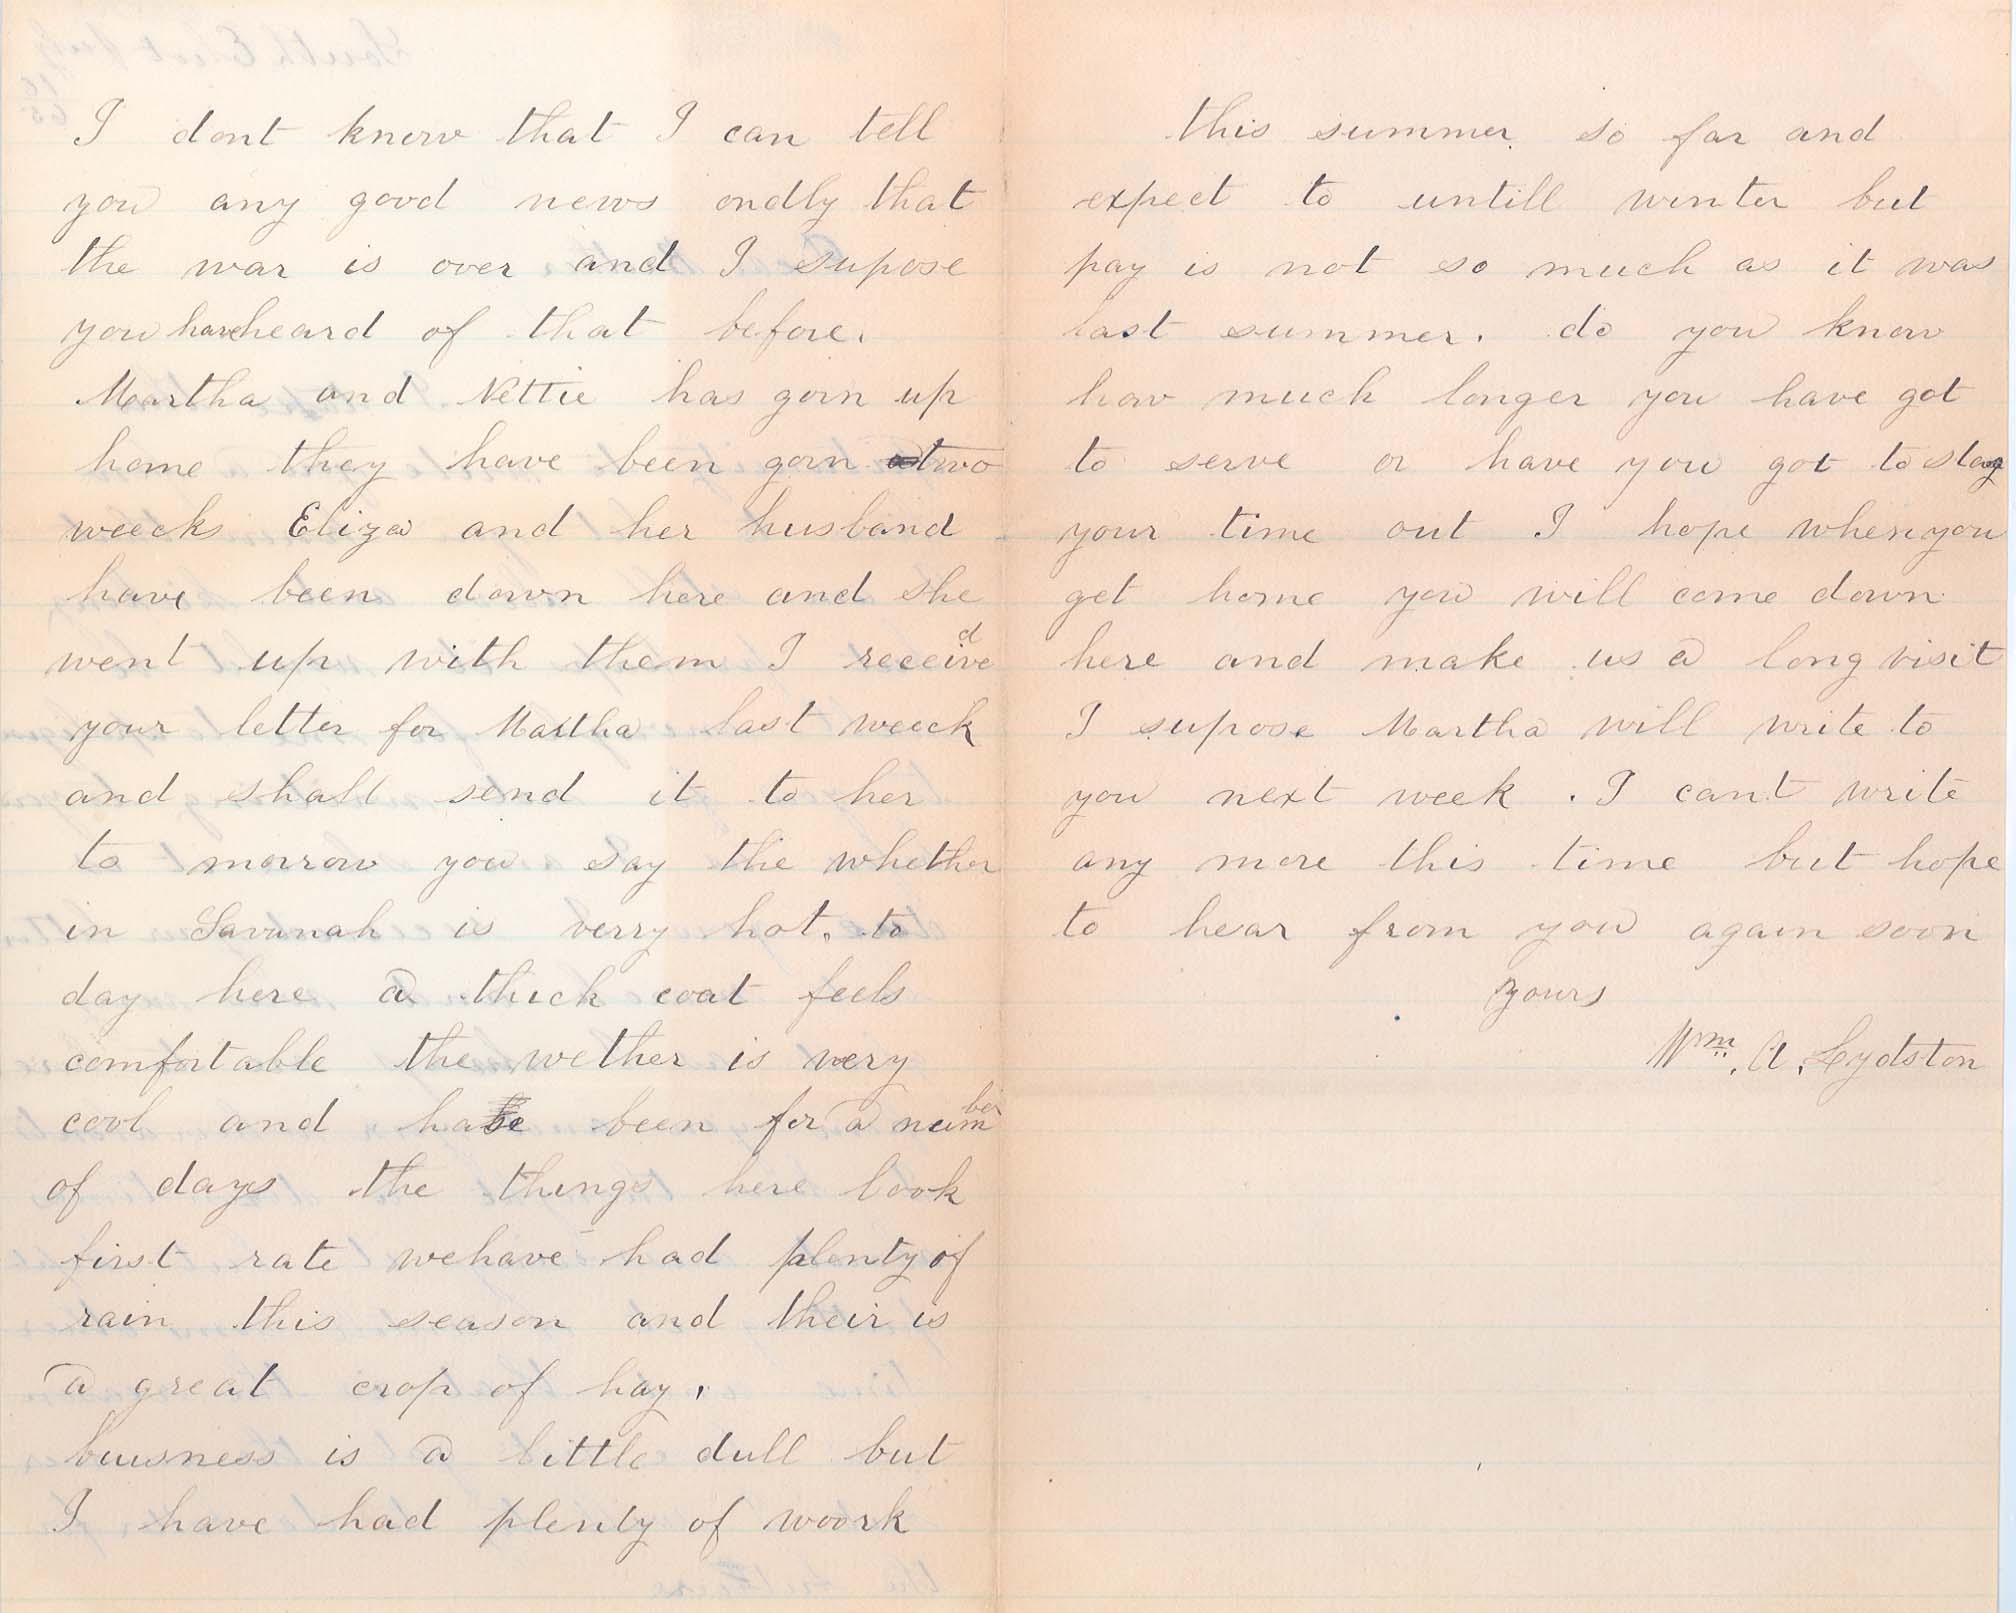 I dont know that I can tell
you any good news ondly that
the war is over and I supose
you have heard of that before.
Martha and Nettie has gorn up
home they have been gorn two
weecks Eliza and her husband
have been down here and she
went up with them I receivd
your letter for Martha last weeck
and shall send it to her
to morrow you say the whether
in Savanah is verry hot. to
day here a thick coat feels
comfortable the wether is very
cool and have been for a number
of days the things here look
first rate we have had plenty of
rain this season and their is
a great crop of hay.
buisness is a little dull but
I have had plenty of woork
this summer so far and
expect to untill winter but
pay is not so much as it was
last summer. do you know
how much longer you have got
to serve or have you got to stay
your time out I hope when you
get home you will come down
here and make us a long visit
I supose Martha will write to
you next week. I cant write
any more this time but hope
to hear from you again soon
yours
Wm. A. Lydston